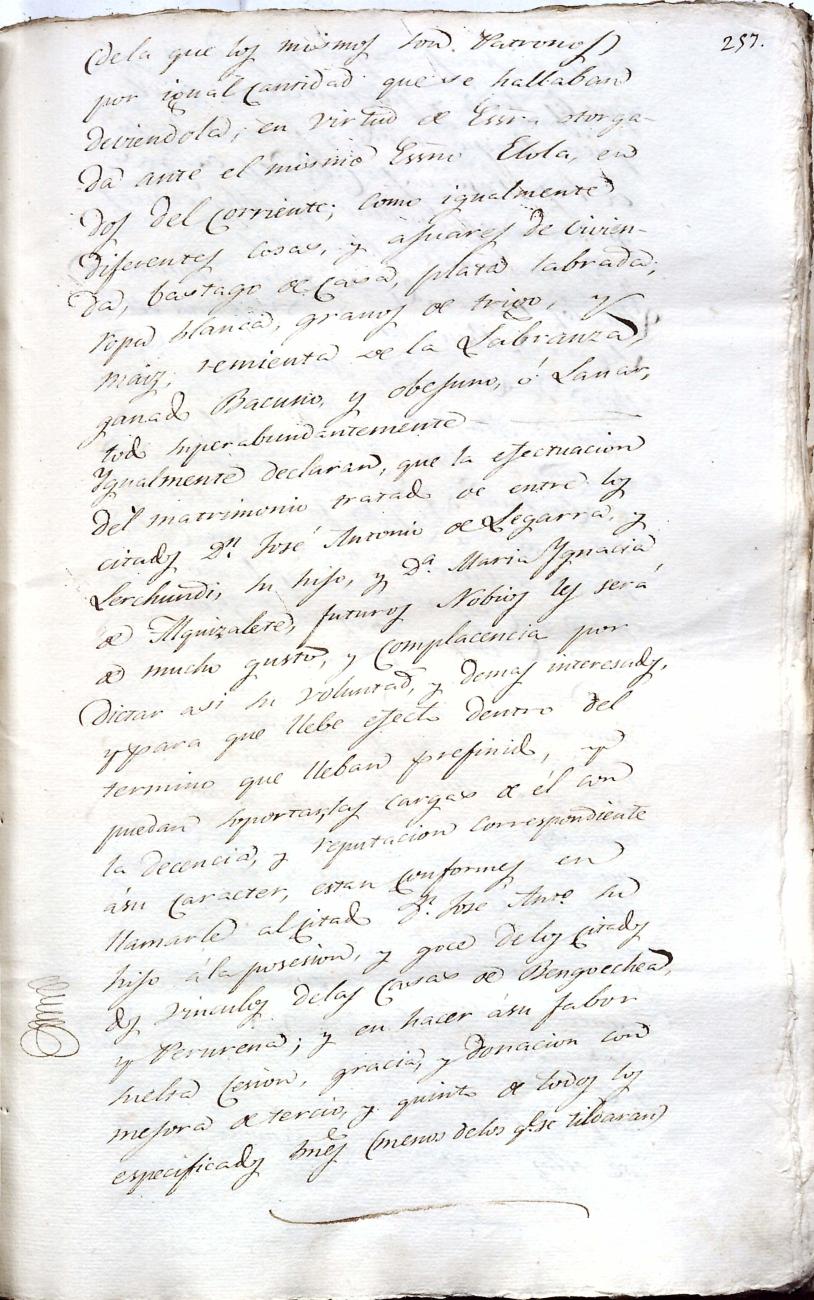 257.
(dela que los mismos son Patronos)
por igual Cantidad que se hallaban
deviendola, en virtud de Essra. otorga-
da ante el mismo Essno Elola, en
dos del Corriente; como igualmente
diferentes cosas, y afuares de vivien-
da, bastago de Casa, plata labrada,
ropa blanca, granos de trigo, y
maiz, remienta de la Labranza,
ganado Bacuno, y obejuno, ó Lanar,
todo superabundantemente
Ygualmente declaran, que la efectuacion
del matrimonio tratado de entre los
citados Dn. José Antonio de Legarra, y
Lerchundi, su hijo, y Da. Maria Ygnacia
de Alquizalete, futuros Nobios les será
de mucho gusto, y Complacencia por
dictar asi su voluntad, y demas interesados,
y para que llebe efecto dentro del
termino que lleban prefinido, y
puedan soportar las cargas de él con
la decencia, y reputacion correspondiente
ásu Caracter, estan Conformes en
llamarle al Citado Dn. José Anto. su
hijo á la posesion, y goce delos Citados
dos vinculos delas Casas de Bengoechea,
y Perurena; y en hacer ásu fabor
suelta Cesion, gracia, y donacion con
mejora de tercio, y quinto de todos los
especificados bnes (menos delos qe. se tildaran)